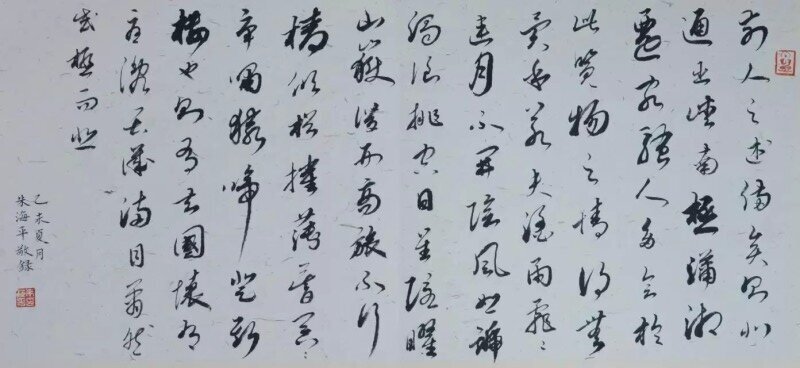 前人之述備矣則北
通巫峽南極瀟湘
遷客騷人多會於
此覽物之情得無
異乎若夫淫雨霏〻
連月不開陰風怒號
濁浪排空日星隱曜
山嶽潛形商旅不行
檣傾楫摧薄暮冥〻
虎嘯猿啼登斯
樓也則有去國懷鄉
憂讒畏譏滿目蕭然
感極而悲
乙未夏月
朱海平敬録